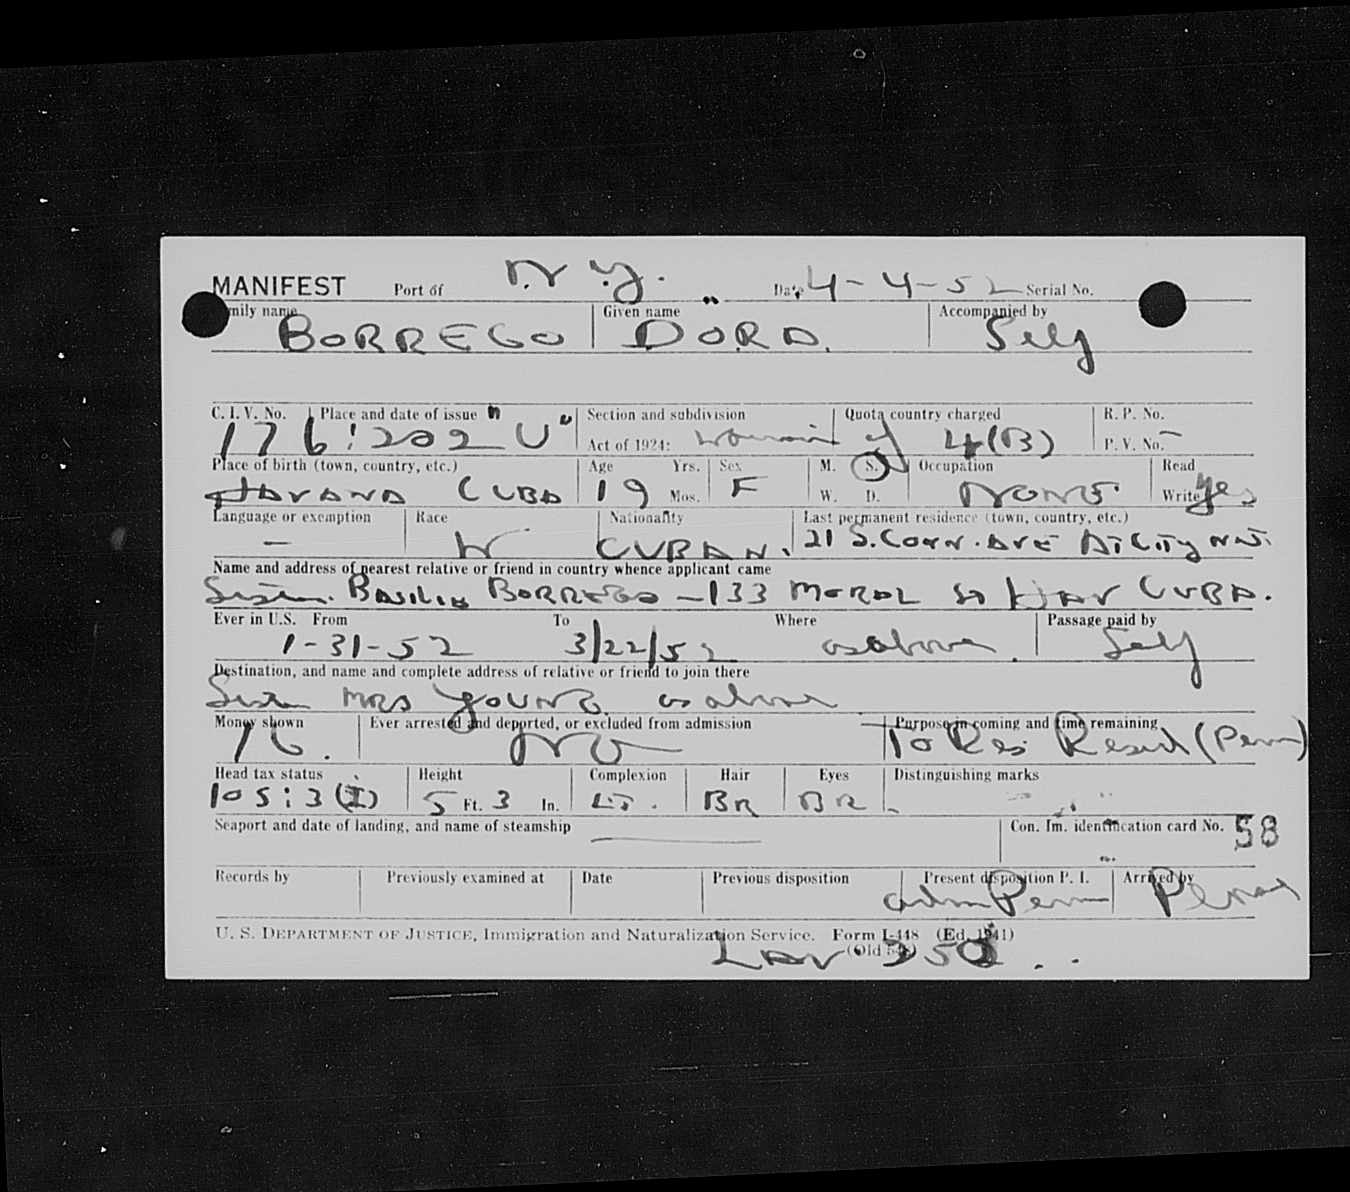 MANIFEST Port of N.Y. Date 4-4-52 Serial No.
Family name Given name Accompanied by
BORREGO DORA. Self
C. I. V. No. Place and date of issue Section and subdivision Quota country charged R. P. No.
176:202 "U" Act of 1924: 4(B) P. V. No. -
Place of birth (town, country, etc.) Age Yrs. Sex M. S. Occupation Read
HAVANA CUBA 19 Mos. F W. D. NONE Write Yes
Language or exemption Race Nationality Last permanent residence (town, country, etc.)
- W CUBAN. 21 S. CONN. AVE At City N.J.
Name and address of nearest relative or friend in country whence applicant came
Sister. Basilia BORREGO - 133 MORAL St HAV CUBA.
Ever in U.S. From To Where Passage paid by
1-31-52 3/22/52 as above. Self
Destination, and name and complete address of relative or friend to join there
Sister MRS YOUNG. as above
Money shown Ever arrested and deported, or excluded from admission Purpose in coming and time remaining
16. NO To Res (Perm)
Head tax status Height Complexion Hair Eyes Distinguishing marks
105:3(I) 5 Ft. 3 In. LT. BR BR -
Seaport and date of landing, and name of steamship Con. Im. identification card No. 58
Records by Previously examined at Date Previous disposition Present disposition P. I. Arrived by
adm Perm
U. S. DEPARTMENT OF JUSTICE, Immigration and Naturalization Service. Form I-448 (Ed. 1941)
(Old